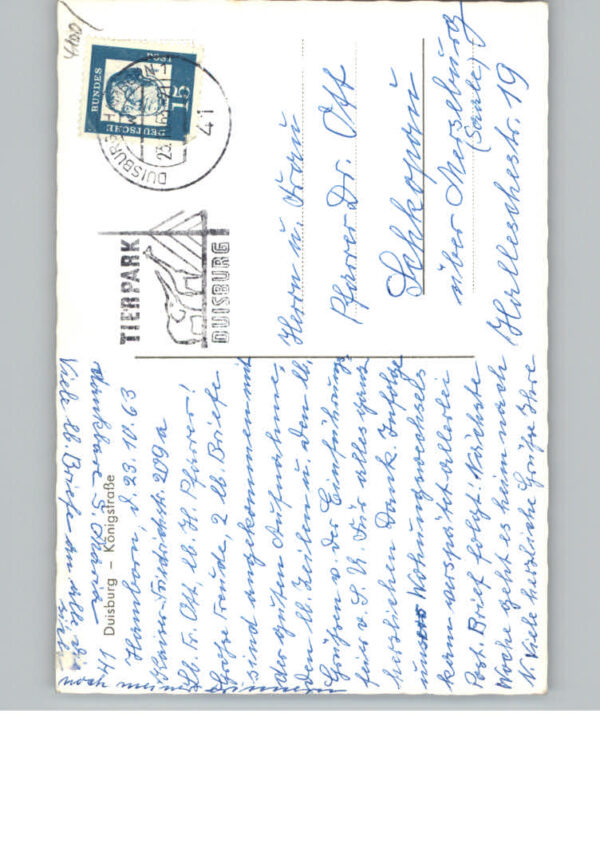 4100
DEUTSCHE
BUNDES
15
DUISBURG
23.
41
TIERPARK
DUISBURG
Herrn u. Frau
Pfarrer Dr. Ott
Schkopau
über Merseburg
(Saale)
Hallesche str. 19
Duisburg – Königstraße
41
Hamborn d. 23.10.63
Kaiser-Friedrichstr. 209a
Lb. Fr. Ott, lb. H. Pfarrer!
Große Freude, 2 lb. Briefe
sind angekommen mit
der guten Aufnahme,
den lb. Zeilen u. den lb.
Grüßen v. der Einführungs
feier v. S. U. Für alles ganz
herzlichen Dank. Infolge
Wohnungswechsels
kam verspätet allerlei
Post. Brief folgt. Nächste
Woche geht es heim nach
N. Viele herzliche Grüße Ihre
Viele lb. Briefe
noch meine